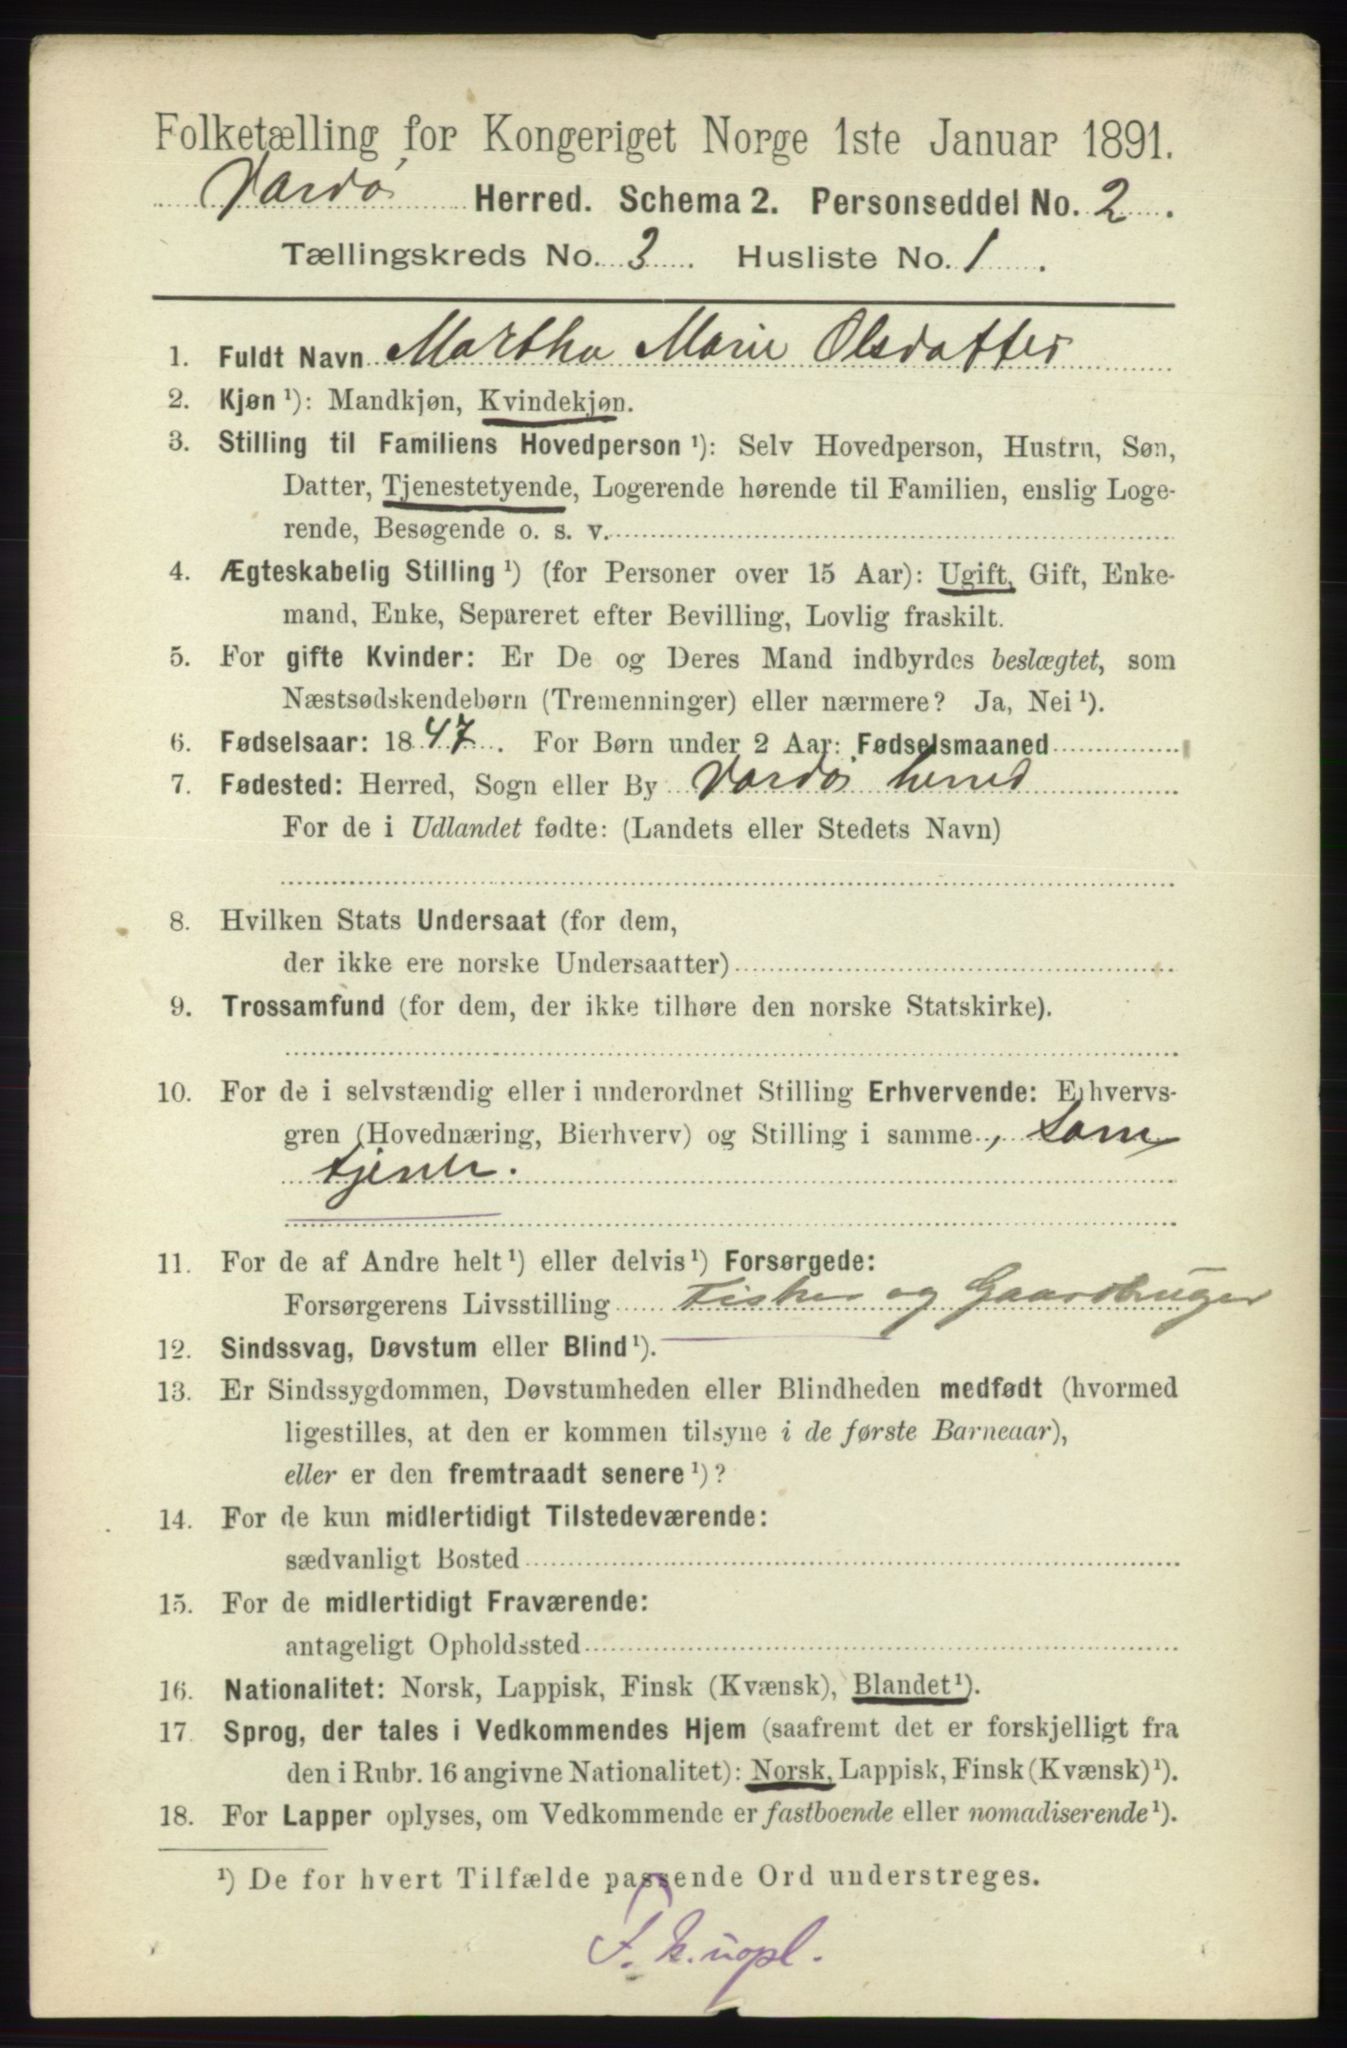 Folketælling for Kongeriget Norge 1ste Januar 1891.
Vardö Herred. Schema 2. Personseddel No. 2.
Tællingskreds No. 3. Husliste No. 1.
1. Fuldt Navn Martha Marie Olsdatter
2. Kjøn ¹): Mandkjøn, Kvindekjøn.
3. Stilling til Familiens Hovedperson ¹): Selv Hovedperson, Hustru, Søn,
Datter, Tjenestetyende, Logerende hørende til Familien, enslig Loge-
rende, Besøgende o. s. v.
4. Ægteskabelig Stilling ¹) (for Personer over 15 Aar): Ugift, Gift, Enke-
mand, Enke, Separeret efter Bevilling, Lovlig fraskilt.
5. For gifte Kvinder: Er De og Deres Mand indbyrdes beslægtet, som
Næstsødskendebørn (Tremenninger) eller nærmere? Ja, Nei ¹).
6. Fødselsaar: 1847. For Børn under 2 Aar: Fødselsmaaned
7. Fødested: Herred, Sogn eller By Vardö herred
For de i Udlandet fødte: (Landets eller Stedets Navn)
8. Hvilken Stats Undersaat (for dem,
der ikke ere norske Undersaatter)
9. Trossamfund (for dem, der ikke tilhøre den norske Statskirke).
10. For de i selvstændig eller i underordnet Stilling Erhvervende: Erhvervs-
gren (Hovednæring, Bierhverv) og Stilling i samme, Som
tjener.
11. For de af Andre helt ¹) eller delvis ¹) Forsørgede:
Forsørgerens Livsstilling Fisker og Gaardbruger
12. Sindssvag, Døvstum eller Blind ¹).
13. Er Sindssygdommen, Døvstumheden eller Blindheden medfødt (hvormed
ligestilles, at den er kommen tilsyne i de første Barneaar),
eller er den fremtraadt senere ¹)?
14. For de kun midlertidigt Tilstedeværende:
sædvanligt Bosted
15. For de midlertidigt Fraværende:
antageligt Opholdssted
16. Nationalitet: Norsk, Lappisk, Finsk (Kvænsk), Blandet ¹).
17. Sprog, der tales i Vedkommendes Hjem (saafremt det er forskjelligt fra
den i Rubr. 16 angivne Nationalitet): Norsk, Lappisk, Finsk (Kvænsk) ¹).
18. For Lapper oplyses, om Vedkommende er fastboende eller nomadiserende ¹).
¹) De for hvert Tilfælde passende Ord understreges.